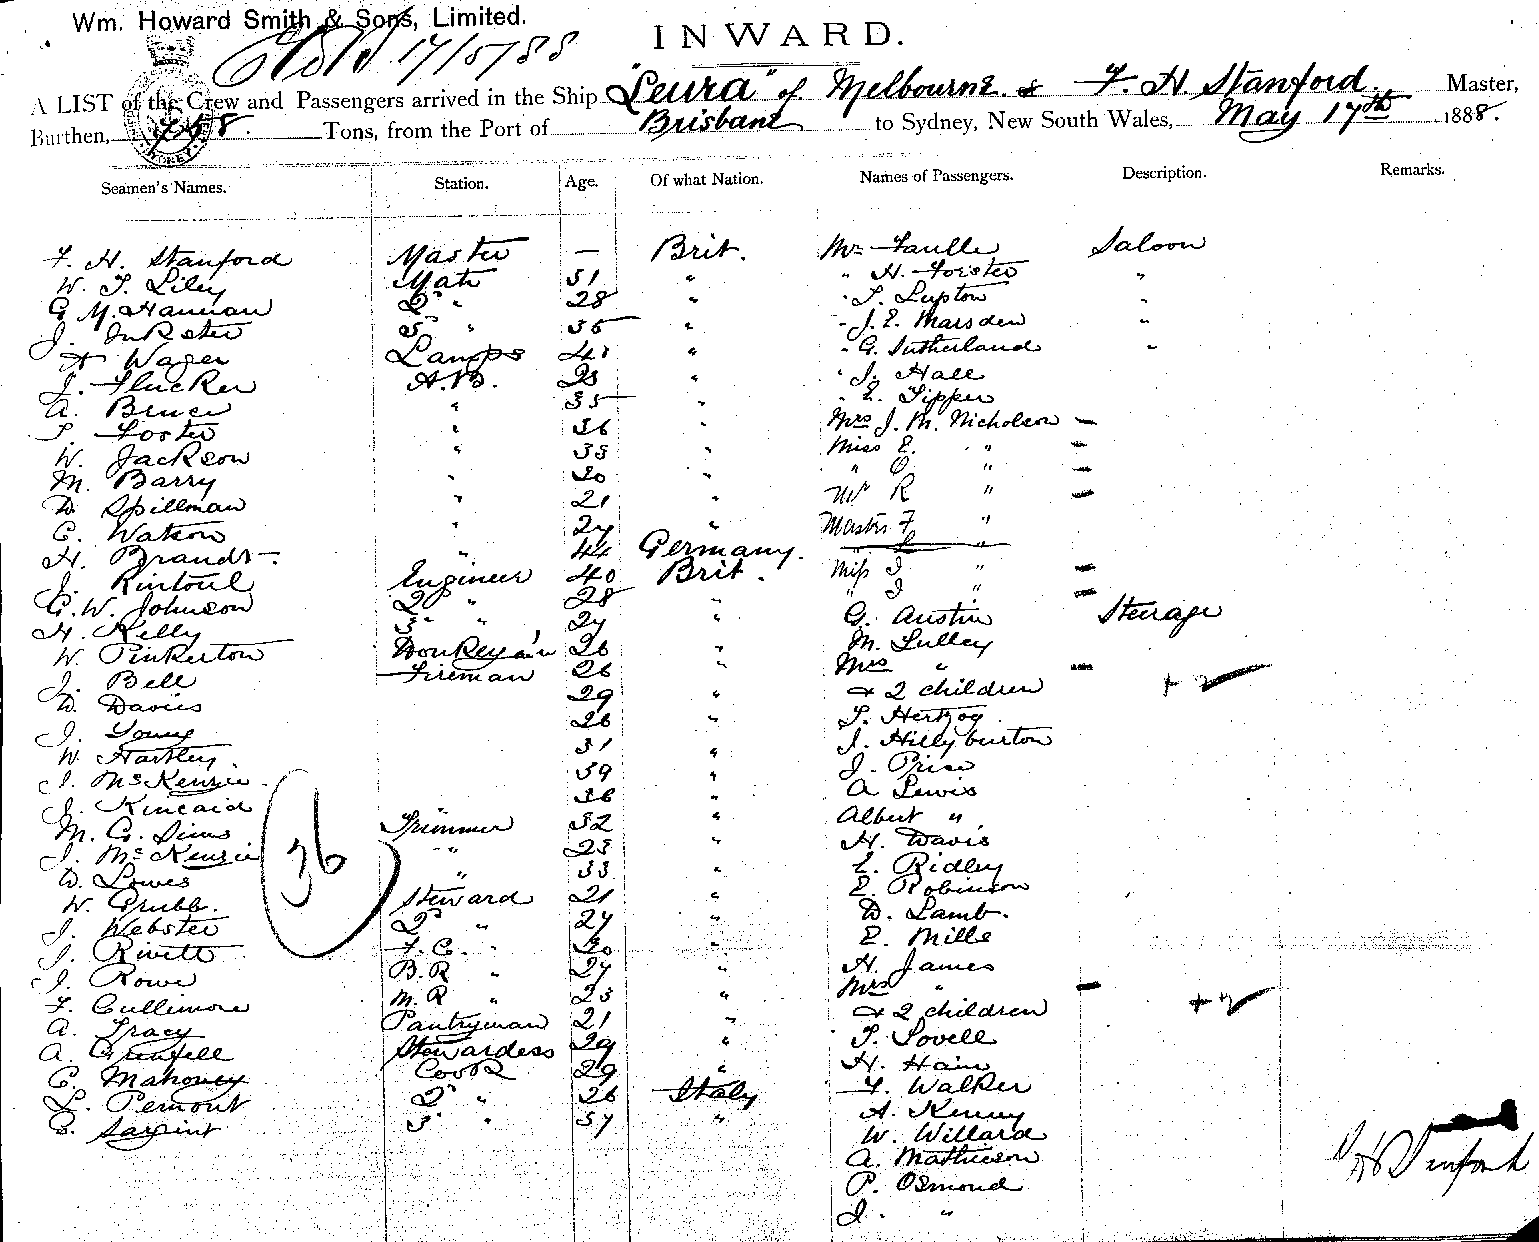 Wm. Howard Smith & Sons, Limited.
17/5/88
INWARD.
A LIST of the Crew and Passengers arrived in the Ship "Leura" of Melbourne F. H. Stanford Master,
Burthen, Tons, from the Port of Brisbane to Sydney, New South Wales, May 17th 1888.
Seamen's Names. Station. Age. Of what Nation. Names of Passengers. Description. Remarks.
F. H. Stanford Master — Brit. Mr Faulle Saloon
W. T. Liley Mate 51 " " H. Forster "
G. M. Hannan 2d " 28 " " T. Lupton "
J. Inkster 3d " 35 " " J. E. Marsden "
Wager Lamps " " G. Sutherland "
J. Flucker A.B. " " J. Hall
A. Bruce " 35 " " E. Tipper
T. Foster " 36 " Mrs J. M. Nicholson –
W. Jackson " 33 " Miss E. " –
M. Barry " 30 " " C. " –
D. Spillman " 21 " Mr R " –
C. Watson " 24 " Master F. "
H. Brandt " 44 Germany.
J. Rintoul Engineer 40 Brit. Miss I " –
G. W. Johnson 2d " 28 " " J " –
H. Kelly 3d " 24 " G. Austin Steerage
W. Pinkerton Donkeyman 26 " M. Lulley
J. Bell Fireman 26 " Mrs " –
D. Davies 29 " + 2 children + 2
J. Young 26 " T. Hertzog
W. Hartley. 31 " J. Hillyburton
J. McKenzie 39 " J. Price
J. Kincaid 36 " A Lewis
M. G. Sims Trimmer 32 " Albert "
J. McKenzie " 23 " H. Davis
D. Lowes " 33 " E. Ridley
W. Grubb. Steward 21 " E. Robinson
J. Webster 2d " 24 " D. Lamb.
J. Rivett F.C. " 30 " E. Mills
J. Rowe B.R " 24 " H. James
F. Cullimore M.R " 23 " Mrs " –
A. Tracy Pantryman 21 " + 2 children + 2
A. Grenfell Stewardess 29 " T. Lovell
C. Mahoney Cook 29 " H. Hain
L. Pemont 2d " 26 Italy F. Walker
Sargint 3d " 34 " A. Kenny
W. Willard
A. Mathieson
P. Osmond
J. "
36